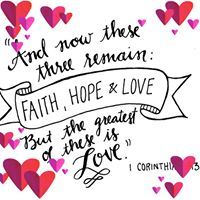 "And now these
three remain:
FAITH, HOPE & LOVE
But the greatest
of these is
Love."
1 CORINTHIA 13